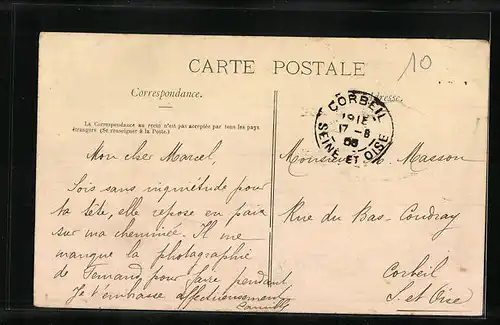 10
CARTE POSTALE
Correspondance.
Adresse.
La Correspondance au recto n'est pas acceptée par tous les pays
étrangers (Se renseigner à la Poste.)
CORBEIL
17 - 8
SEINE ET OISE
Mon cher Marcel,
Sois sans inquiétude pour
ta tête, elle repose en paix
sur ma cheminée. Il me
manque la photographie
de Fernand pour faire pendant
Je t'embrasse affectueusement
Camille
Monsieur Masson
Rue du Bas-Coudray
Corbeil
S. et Oise